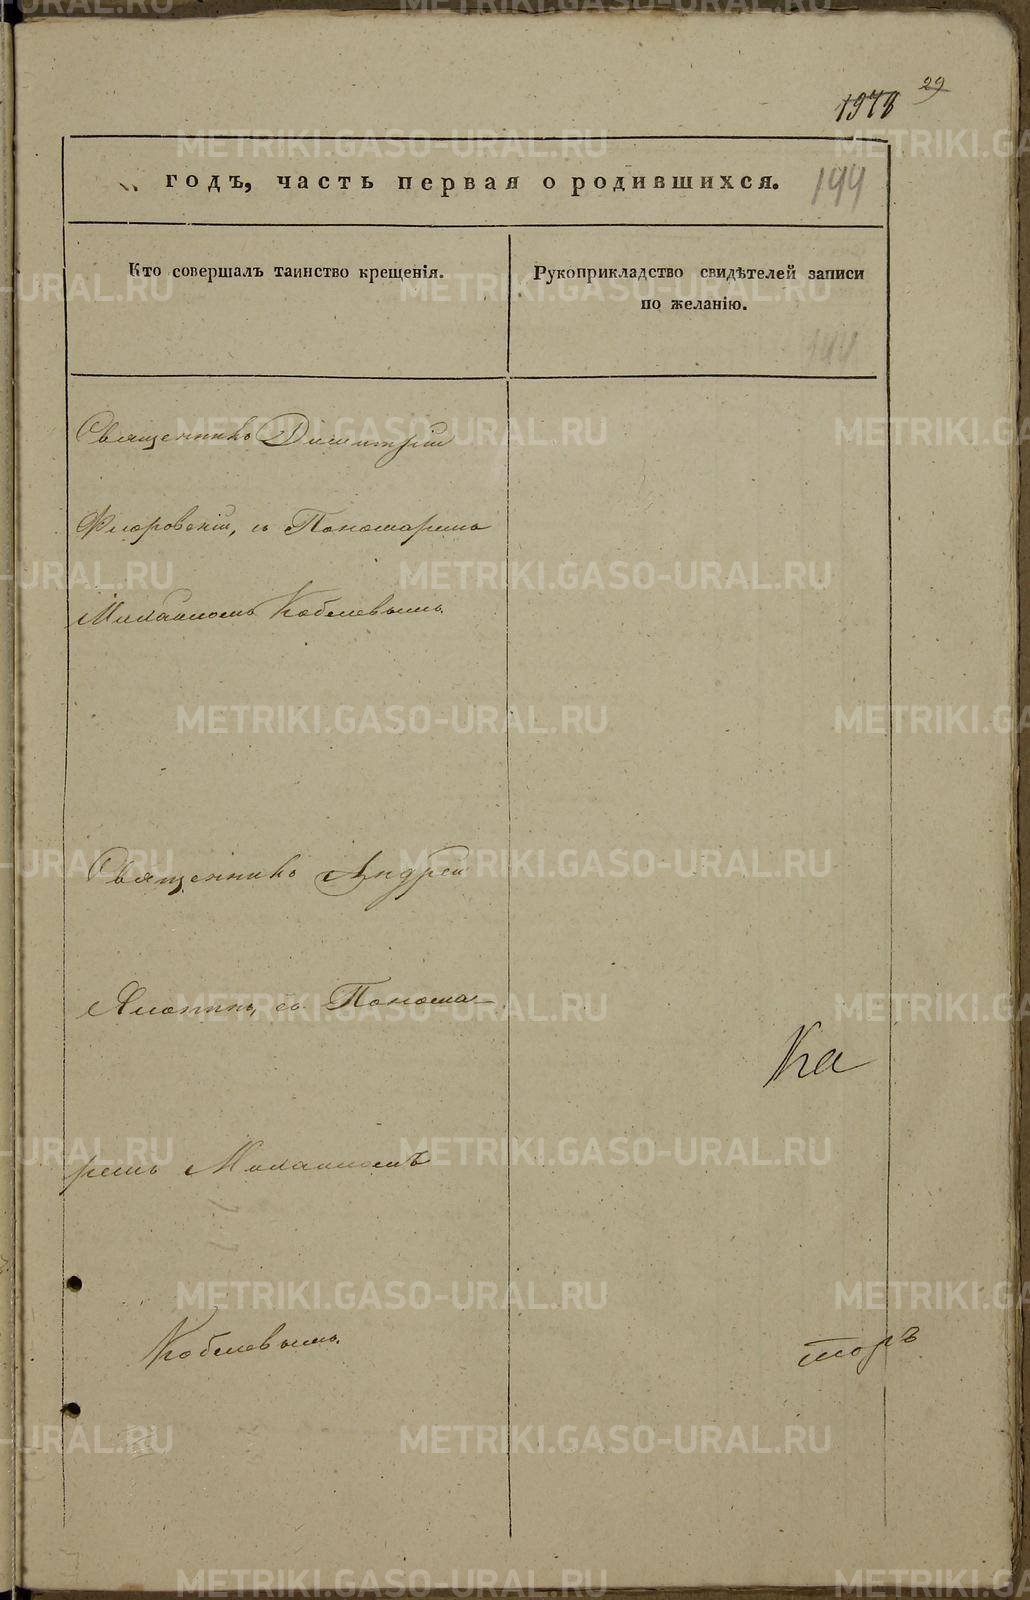 29
1978
годъ, часть первая о родившихся.
144
Кто совершалъ таинство крещенія.
Рукоприкладство свидѣтелей записи
по желанію.
144
Священникъ Димитрій
Флоровскій, съ Пономаремъ
Миланномъ Кобелевымъ.
Священникъ Андрей
съ Понома-
ремъ Миланномъ
Ка
Кобелевымъ.
торъ
METRIKI.GASO-URAL.RU